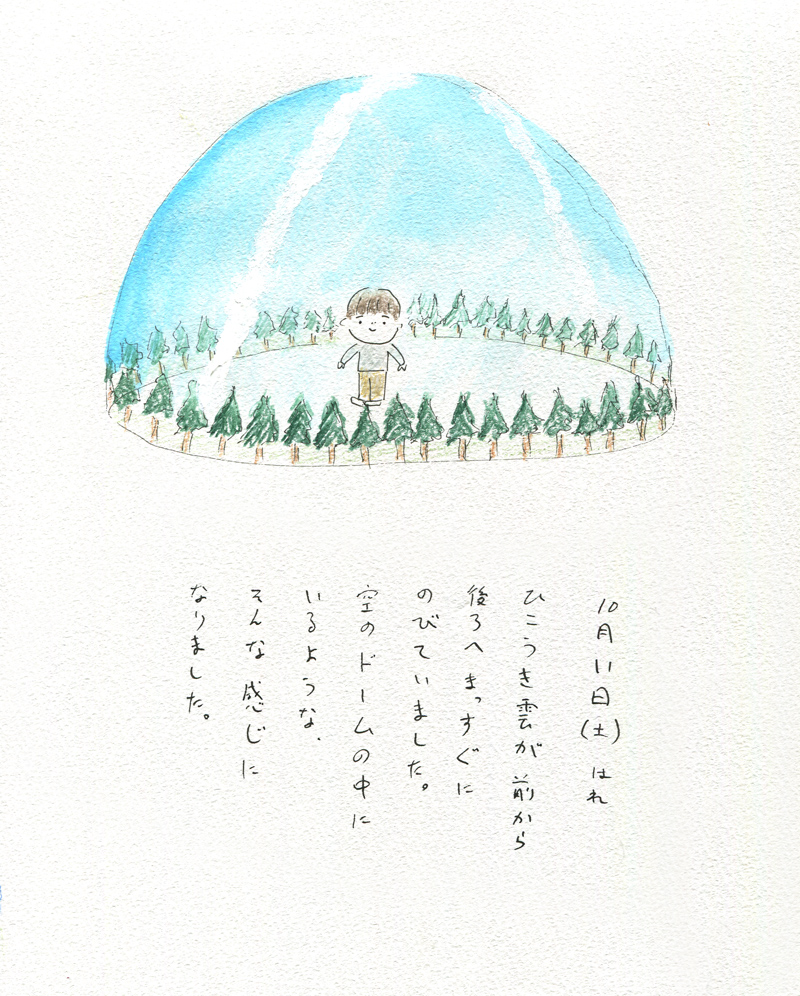 10月11日(土) はれ
ひこうき雲が前から
後ろへまっすぐに
のびていました。
空のドームの中に
いるような、
そんな感じに
なりました。